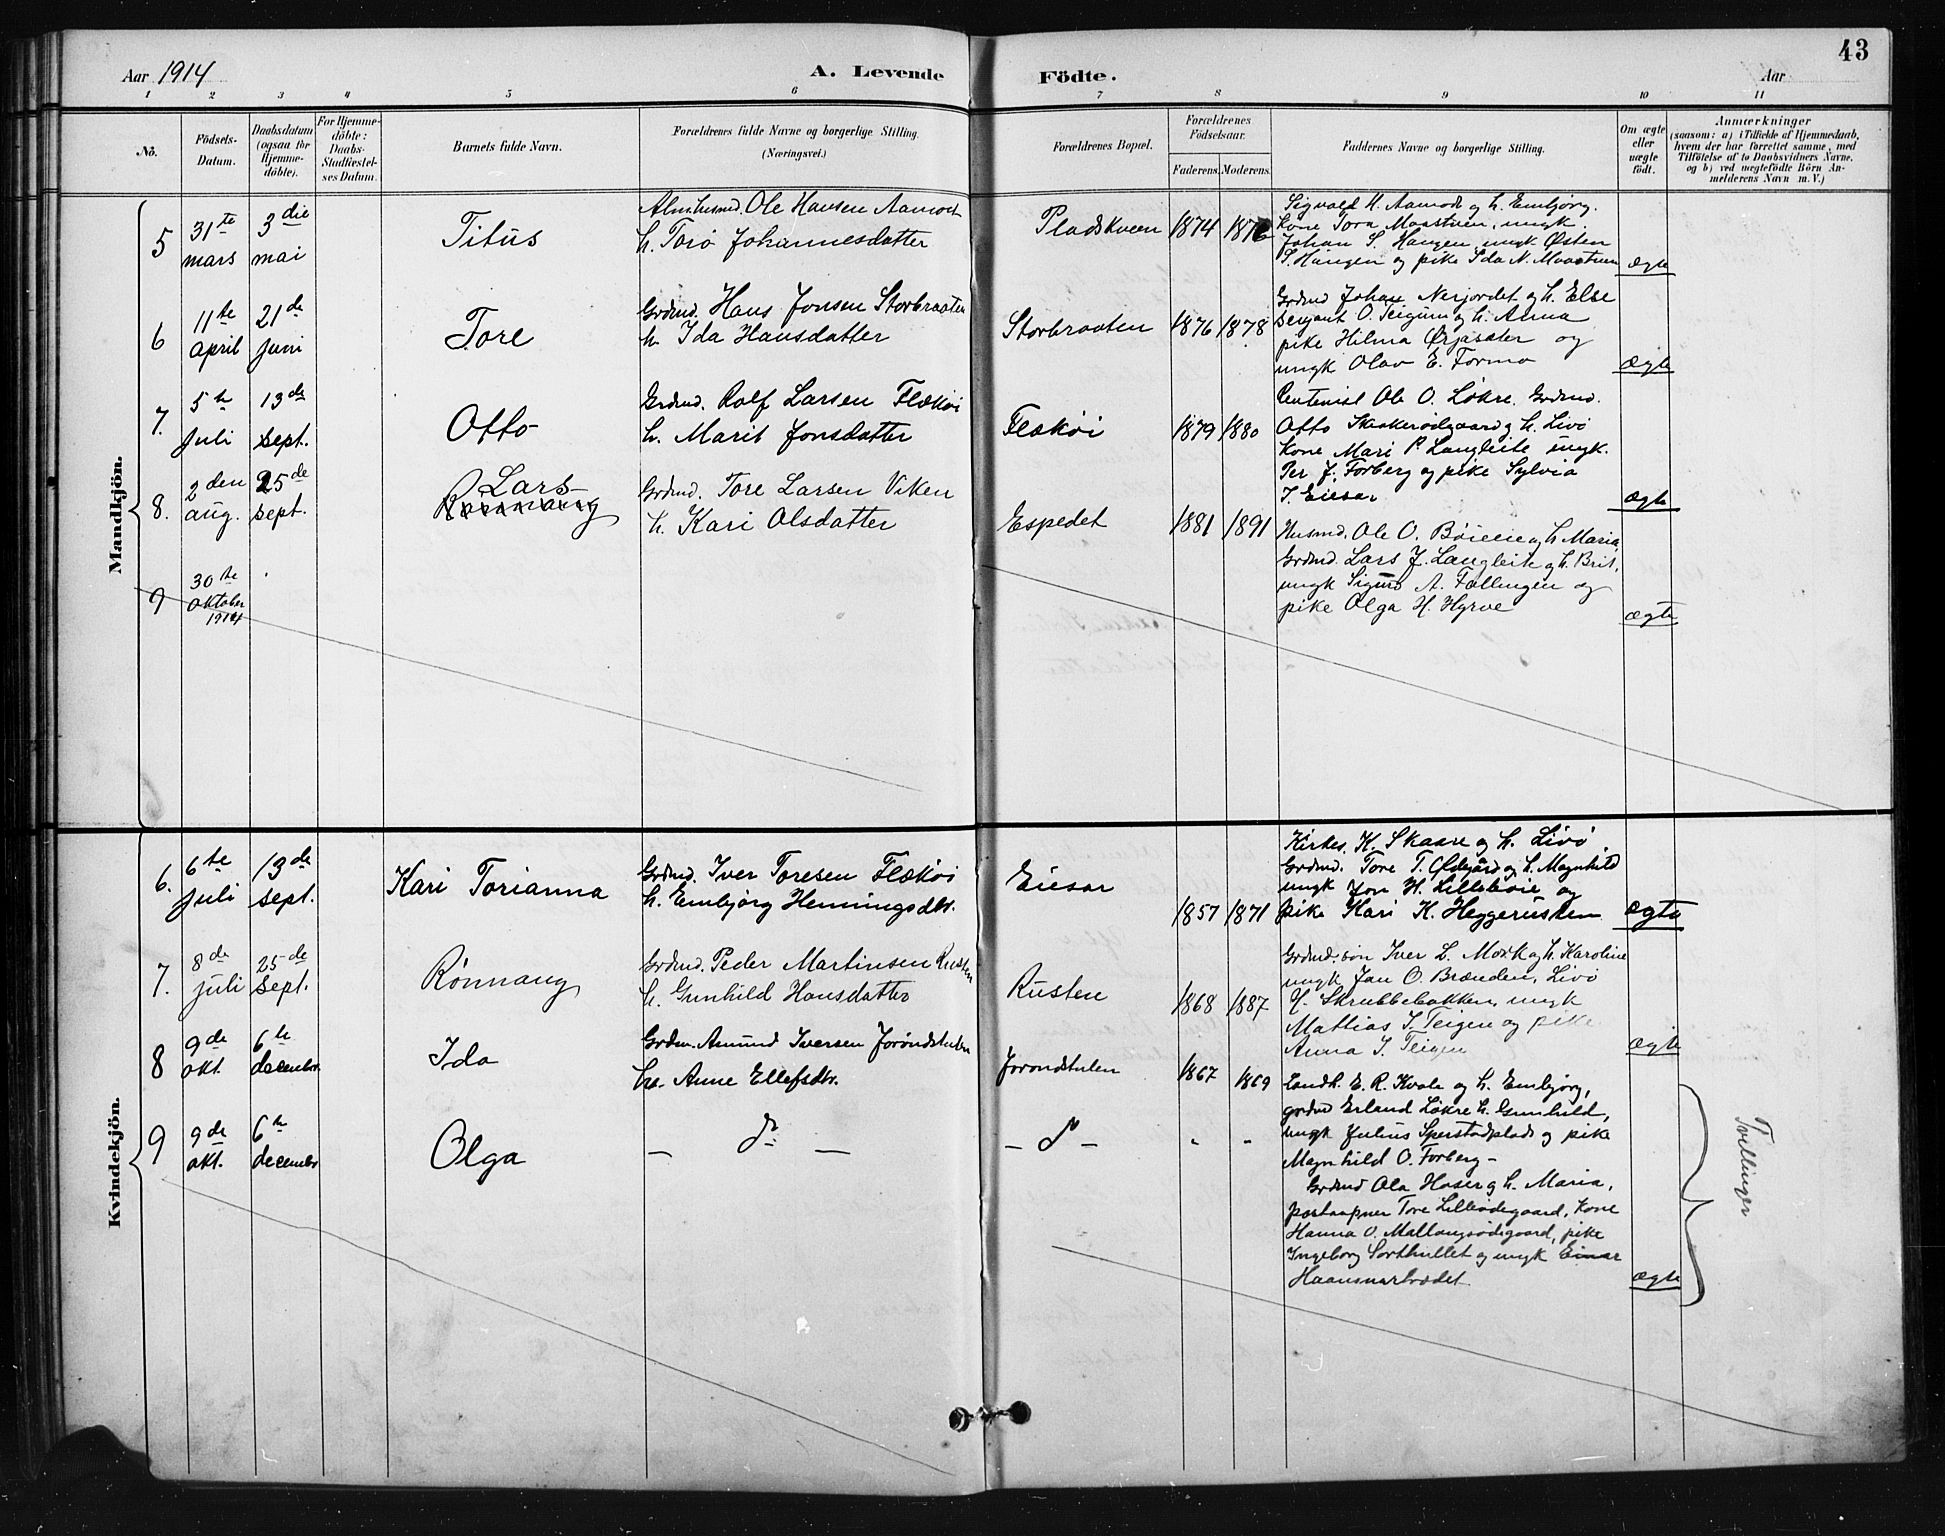 Aar 1914
A. Levende Födte.
Aar
43
1 2 3 4 5 6 7 8 9 10 11
Nö.
Födsels-
Datum.
Daabsdatum
(ogsaa for
Hjemme-
döbte).
For Hjemme-
döbte:
Daabs-
Stadfestel-
ses Datum.
Barnets fulde Navn.
Forældrenes fulde Navne og borgerlige Stilling.
(Næringsvei.)
Forældrenes Bopæl.
Forældrenes
Födselsaar.
Faderens. Moderens.
Faddernes Navne og borgerlige Stilling.
Om ægte
eller
uægte
födt.
Anmærkninger
(saasom: a) i Tilfælde af Hjemmedaab,
hvem der har forrettet samme, med
Tilföielse af to Daabsvidners Navne,
og b) ved uægtefödte Börn An-
melderens Navn m. V.)
Mandkjön.
5
31te
mars
3die
mai
Titus
Ole Hansen Aamodt
h. Toro Johannesdatter
Pladskveen
1874
1876
Sigvald H. Aamodt og h. Embjørg.
Kone Tora Maastuen, ungk.
Johan S. Haugen, ungk Østen
S. Haugen og pike Ida N. Maastuen
Ægte
6
11te
april
21de
juni
Tore
Grdmd. Hans Jonsen Storbraaten
h. Ida Hansdatter
Storbraaten
1876
1878
Grdmd Johan Nerjordet og h. Else
Sergant O. Teigum og h. Anna
pike Hilma Ørjasæter og
ungk Olav E. Formo
Ægte
7.
5te
juli
13de
sept.
Otto
Grdmd. Rolf Larsen Flækøi
h. Marit Jonsdatter
Flækøi
1879
1880
Rentenist Ole O. Løkre. Grdmd.
Otto Skakerødegaard og h. Livø
Kone Mari P. Langleite ungk.
Per J. Forberg og pike Sylvia
I. Eiesar
Ægte
8.
2den
aug.
25de
sept.
Lars
Rønnaug
Grdmd. Tore Larsen Viken
h. Kari Olsdatter
Espedet
1881
1891
Husmd. Ole O. Bøieeie og h Maria,
Grdmd. Lars J. Langleite og h. Brit,
ungk Sigurd A. Fallingen og
pike Olga H. Hyrve
Ægte
9
30te
oktober
1914
Kvindekjön.
6.
6te
juli
13de
sept.
Kari Torianna
Grdmd. Iver Toresen Flækøi
h. Embjørg Henningsdtr.
Eiesar
1857
1871
Kirkes. K. Skaare og h. Livø
Grdmd. Tore T. Ødegård og h. Magnhild
ungk Jon H. Lillebøie og
pike Kari K. Heggerusten
Ægte
7.
8de
juli
25de
sept.
Rønnaug
Grdmd. Peder Martinsen Rusten
h. Gunhild Hansdatter
Rusten
1868
1887
Grdmd.søn Iver L. Mork og h. Karoline
ungk Jan O. Brænden, Livø
H. Skrubbebakken, ungk
Mattias I. Teigen og pike
Anna I. Teigen
Ægte
8
9de
okt.
6te
december.
Ida
Grdm. Amund Iversen Jorondstulen
h. Anne Ellefsdtr.
Jorondstulen
1867
1869
Landh. E. R. Kvale og h. Embjørg,
grdmd Erland Løkre h. Gunhild,
ungk Julius Sperstadplads og pike
Magnhild O. Forberg -
9
9de
okt.
6te
december
Olga
— do —
- do -
" "
Grdmd Ola Haser og h. Maria,
postaapner Tore Lilleødegaard, Kone
Hanna O. Mallangsødegaard, pike
Ingeborg Sorthullet og ungk Einar
Haansnarbrædet
Ægte
Tvillinger